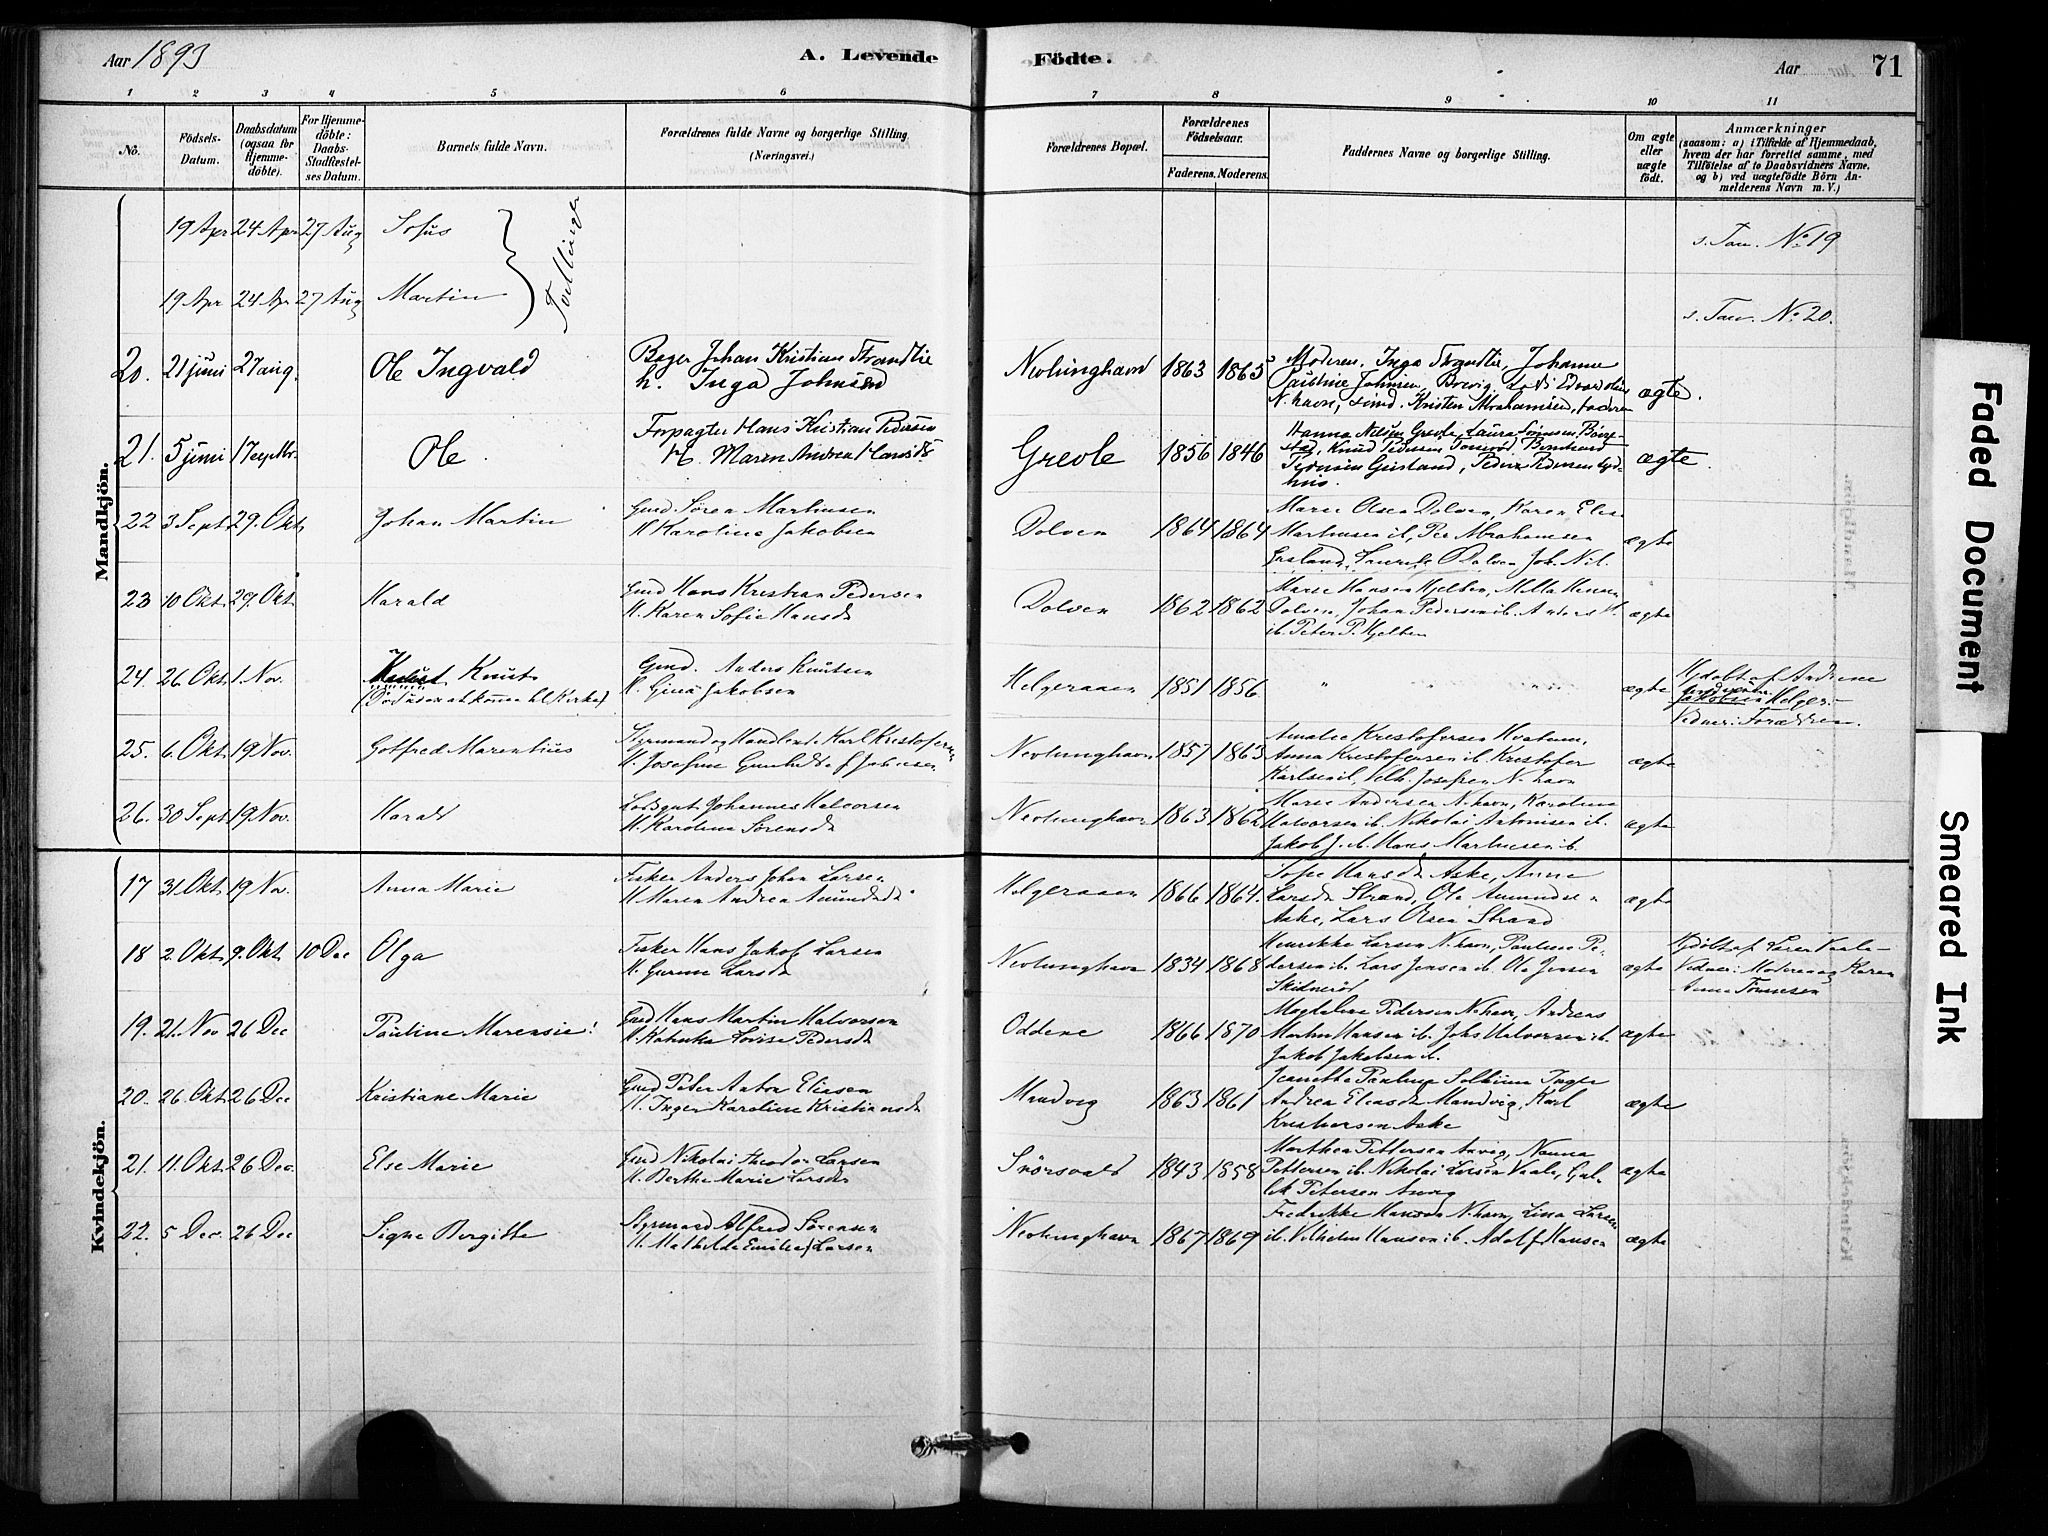 Aar 1893
A. Levende
Födte.
Aar
71
1 2 3 4 5 6 7 8 9 10 11
No.
Födsels-Datum.
Daabsdatum (ogsaa for Hjemme-döbte).
For Hjemme-döbte: Daabs-Stadfæstel-ses Datum.
Barnets fulde Navn.
Forældrenes fulde Navne og borgerlige Stilling.
(Næringsvei.)
Forældrenes Bopæl.
Forældrenes Födselsaar.
Faderens. Moderens.
Faddernes Navne og borgerlige Stilling.
Om ægte eller uægte födt.
Anmærkninger
(saasom: a) i Tilfælde af Hjemmedaab, hvem der har forrettet samme, med Tilföielse af to Daabsvidners Navne, og b) ved uægtefödte Börn An-melderens Navn m. V.)
Mandkjön.
19 Apr 24 Apr 27 Aug Sofus
Tvillinger
s. Tav. No 19
19 Apr 24 Apr 27 Aug Martin
s. Tav. No 20.
20. 21 juni 27 aug. Ole Ingvald
Bager Johan Kristian Strandlie
h. Inga Johnsen
Nevlunghavn 1863 1865
Moderen, Inga Strandlie, Johanne
N. havn, Kristen Abrahamsen, faderen
ægte.
21. 5 juni 17 septbr. Ole
Forpagter Hans Kristian Pedersen
H. Maren Andrea Hansdtr
Grevle 1856 1846
Hanna Nilsen Grevle, Laura Simonsen,
Knud Pedersen
ægte.
22 3 Sept. 29. Okt Johan Martin
Gmd Søren Marthinsen
H Karoline Jakobsen
Dolven 1864 1864
Marie Olsen Dolven, Karen Elise
Marthinsen ib, Per Abrahamsen
ægte
23 10 Okt. 29. Okt Harald
Gmd Hans Kristian Pedersen
H. Karen Sofie Hansdtr
Dolven 1862 1862
Marie Hansen
Dolven, Johan Pedersen ib. Anders H.
ib. Peter P.
ægte
24. 26. Okt. 1. Nov. Knut
Gmd. Anders Knutsen
H. Gina Jakobsen
Helgeraaen 1851 1856
" " "
ægte
Hjdøbt af Andrine
Jakobsen Helger.
Vidner: Forældrene.
25. 6. Okt. 19 Nov. Gotfred Marentius
Styrmand og Handlende Karl Kristofersen
H. Josefine
Nevlunghavn 1857 1863
Amalie Kristofersen
Anna Kristofersen ib. Kristofer
Karlsen ib, Josefsen N. havn
ægte
26. 30 Sept. 19 Nov. Harald
Lodsgut Johannes Halvorsen
H. Karoline Sørensdtr
Nevlunghavn 1863 1862
Marie Andersen N. havn, Karoline
Halvorsen ib. Nikolai Antonisen ib.
Jakob J. ib. Hans Marthinsen ib.
ægte
Kvindekjön.
17 31 Okt. 19 Nov. Anna Marie
Fisker Anders Johan Larsen
H Maren Andrea Amundsdtr.
Helgeraaen 1866 1864.
Sofie Hansdtr Aske, Anne
Larsdtr Strand, Ole Amundsen
Aske, Lars Olsen Strand
ægte
18 2. Okt. 9. Okt 10 Dec Olga
Fisker Hans Jakob Larsen
H. Larsdtr
Nevlunghavn 1834 1868
Henrikke Larsen N. havn, Pauline Pe-
dersen ib. Lars Jensen ib. Ole Jensen
Skidnerød
ægte
Hjdøbt af
Vidner: Moderen og Karen
Anna Tønnesen
19. 21. Nov 26 Dec Pauline Marensie!
Gmd Hans Martin Halvorsen
H. Lovise Pedersdtr
Oddene 1866 1870
Magdalene Pedersen N. havn, Andreas
Martin Hansen ib. Johs Halvorsen ib.
Jakob Jakobsen ib.
ægte
20. 26. Okt. 26 Dec Kristiane Marie
Gmd Peter Anton Eliasen
H. Inger Karoline Kristiansdtr
Mandvig 1863 1861
Jeanette Pauline Inger
Andrea Eliasdtr Mandvig, Karl
Aske
ægte
21. 11. Okt. 26 Dec. Else Marie
Gmd Nikolai Theodor Larsen
H. Berthe Marie Larsdtr
1843 1858
Marthea Pettersen Anvig, Nanna
Pettersen ib. Nikolai Larsen
Petersen
ægte
22. 5 Dec. 26 Dec Signe Birgitte
Styrmand Alfred Sørensen
H. Mathilde Emilie Larsen
Nevlunghavn 1867 1869
Fredrikke Hansen N. havn, Lina Larsen
ib. Vilhelm Hansen ib. Adolf Hansen
ægte
Faded Document
Smeared Ink